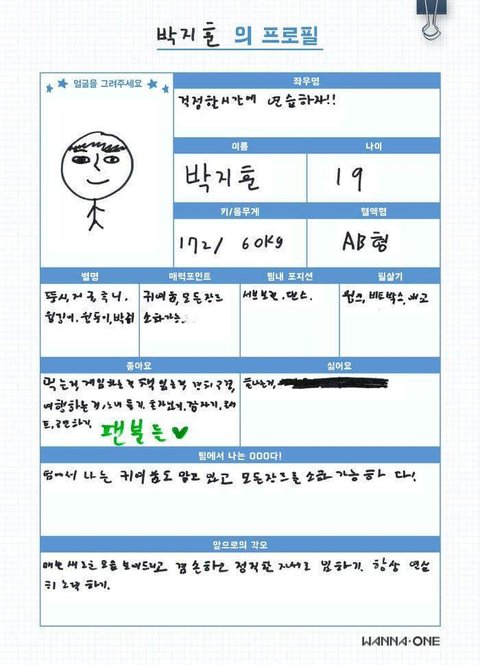 박지훈 의 프로필
얼굴을 그려주세요
좌우명
걱정할시간에 연습하자!!
이름
나이
박지훈
19
키/몸무게
혈액형
172/ 60kg
AB형
별명
매력포인트
팀내 포지션
필살기
귀여움, 모든장르
소화가능.
서브보컬, 댄스.
윙크, 비트박스,
좋아요
싫어요
먹는거, 게임하는거
여행하는거, 노래 듣기,
팬분들
팀에서 나는 OOO다!
팀에서 나는 귀여움도 맡고 있고 모든장르를 소화 가능하 다!
앞으로의 각오
매번 새로운 모습 보여드리고 겸손하고 정직한 자세로 임하기. 항상 연습
하기.
WANNA·ONE